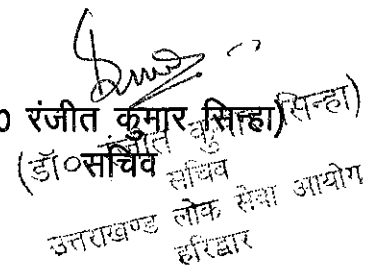 ० रंजीत कुमार सिन्हा)
सचिव
(डॉ० रंजीत कुमार सिन्हा)
सचिव
उत्तराखण्ड लोक सेवा आयोग
हरिद्वार